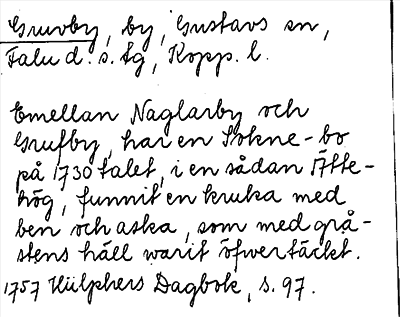 Gruvby, by, Gustavs sn,
Falu d. s. fg, Kopp. l.
Emellan Naglarby och
Grufby, har en Sokne-bo
på 1730 talet, i en sådan Ätte-
hög, funnit en kruka med
ben och aska, som med grå-
stens häll warit öfwertäckt.
1757 Hülphers Dagbok, s. 97.